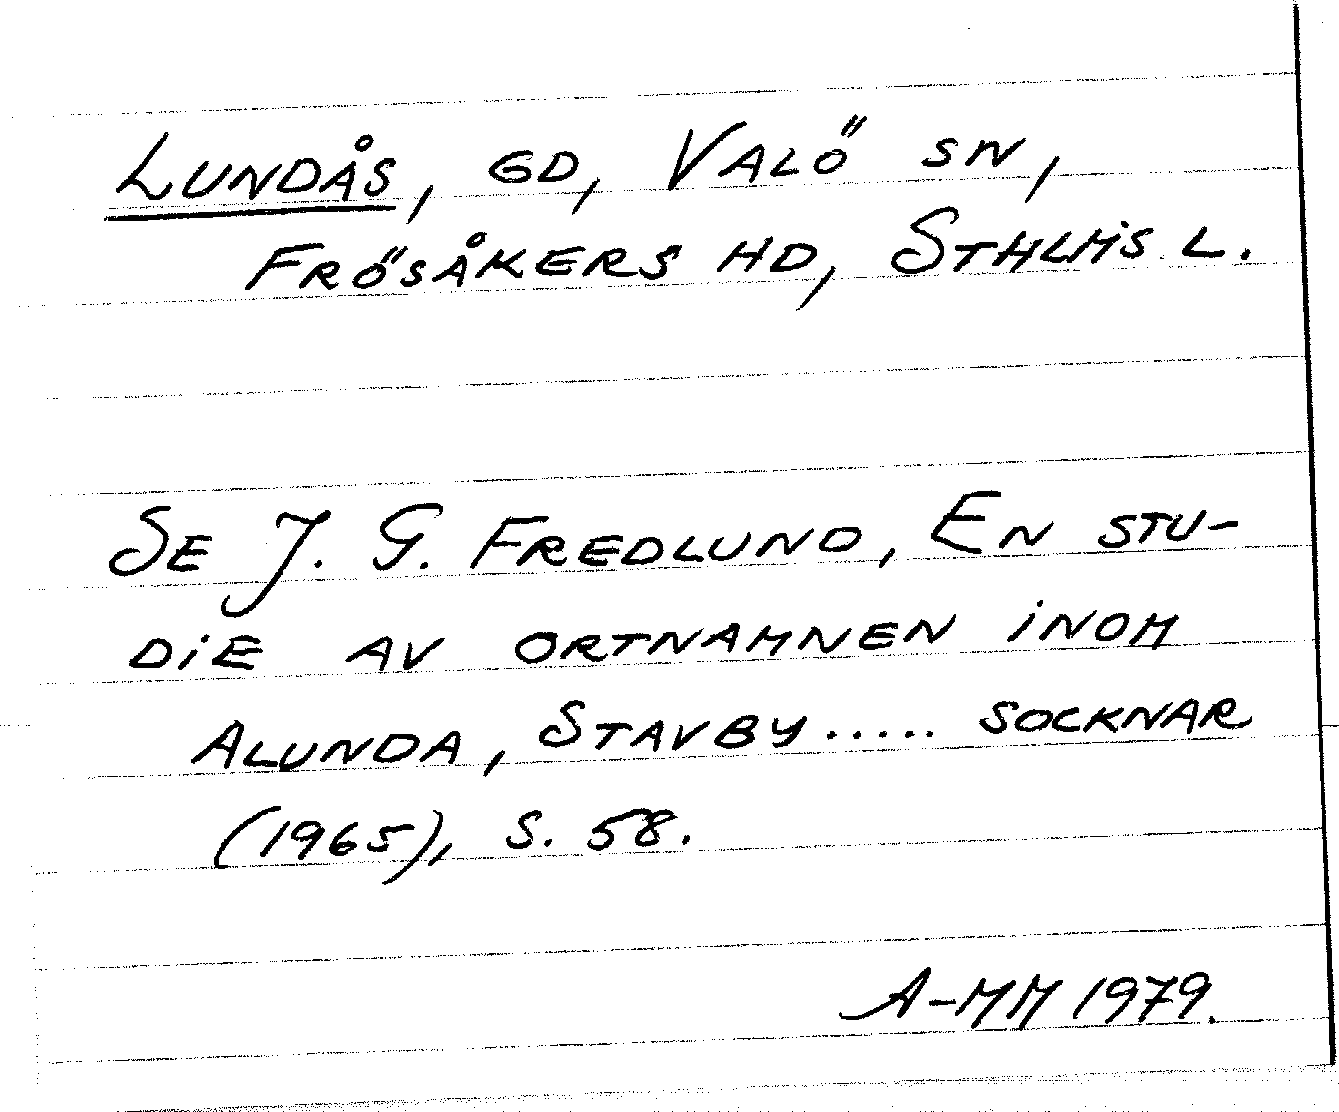 LUNDÅS, GD, VALÖ SN,
FRÖSÅKERS HD, STHLMS L.
SE J. G. FREDLUND, EN STU-
DIE AV ORTNAMNEN INOM
ALUNDA, STAVBY ..... SOCKNAR
(1965), S. 58.
A-MM 1979.